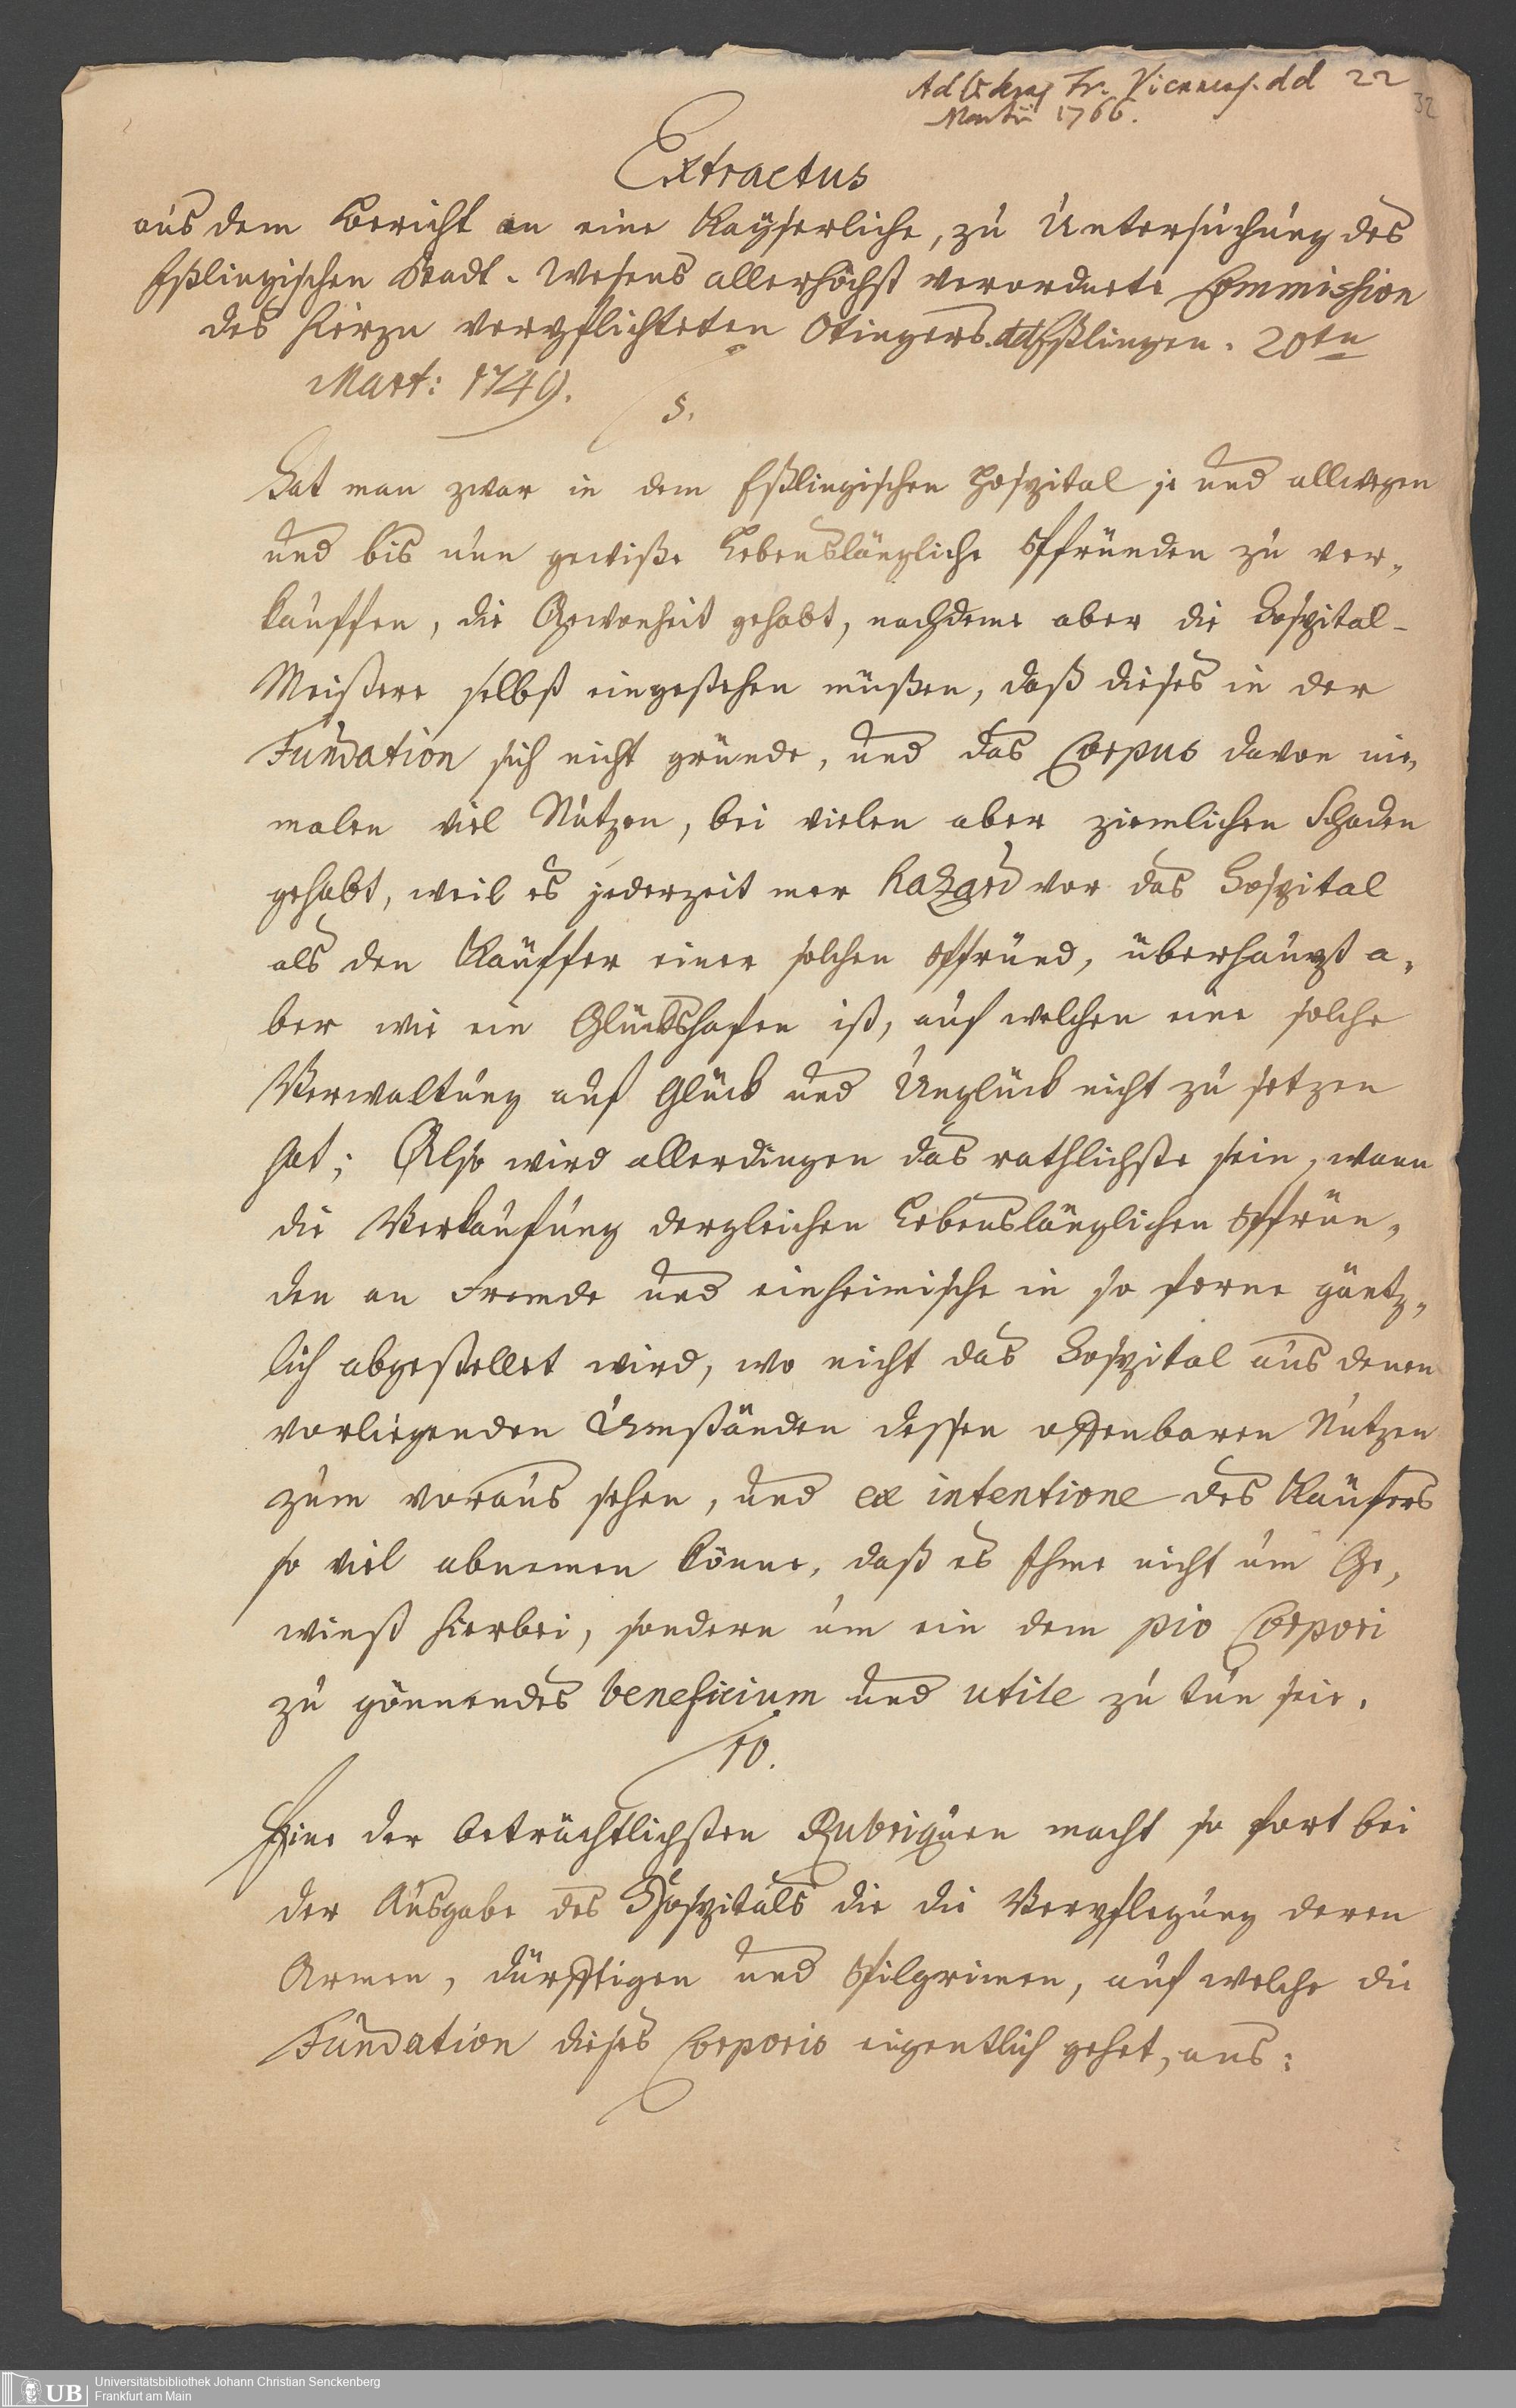 Ad
Fr. dd 22
Martii 1766.
32
Extractus
aus dem Bericht an eine Kayserliche, zu Untersuchung des
Eßlingischen Stadt-Wesens allerhöchst verordnete Commission
des hierzu verpflichteten Otingers. dd Eßlingen. 20ten
Mart: 1749.
§.
Hat man zwar in dem Eßlingischen Hospital je und allwegen
und bis nun gewiße Lebenslängliche Pfründen zu ver„
kauffen, die Gewonheit gehabt, nachdeme aber die Hospital-
Meistere selbst eingestehen müßen, daß dieses in der
Fundation sich nicht gründe, und das Corpus davon nie„
malen viel Nutzen, bei vielen aber ziemlichen Schaden
gehabt, weil es jederzeit mer hazard vor das Hospital
als den Käuffer einer solchen Pfründ, überhaupt a„
ber wie ein Glückshafen ist, auf welchen eine solche
Verwaltung auf Glück und Unglück nicht zu setzen
hat; Also wird allerdingen das rathlichste sein, wann
die Verkaufung dergleichen Lebenslänglichen Pfrün„
den an Fremde und einheimische in so ferne gäntz„
lich abgestellet wird, wo nicht das Hospital aus denen
vorliegenden Umständen dessen offenbaren Nutzen
zum voraus sehen, und ex intentione des Käufers
so viel abnemen könne, daß es Ihme nicht um Ge„
winst hierbei, sondern um ein dem pio Corpori
zu gönnendes beneficium und utile zu tun seie.
10.
Eine der beträchtlichsten Rubriquen macht so fort bei
der Ausgabe des Hospitals die die Verpflegung deren
Armen, dürfftigen und Pilgrimen, auf welche die
Fundation dieses Corporis eigentlich gehet, aus:
UB
Universitätsbibliothek Johann Christian Senckenberg
Frankfurt am Main